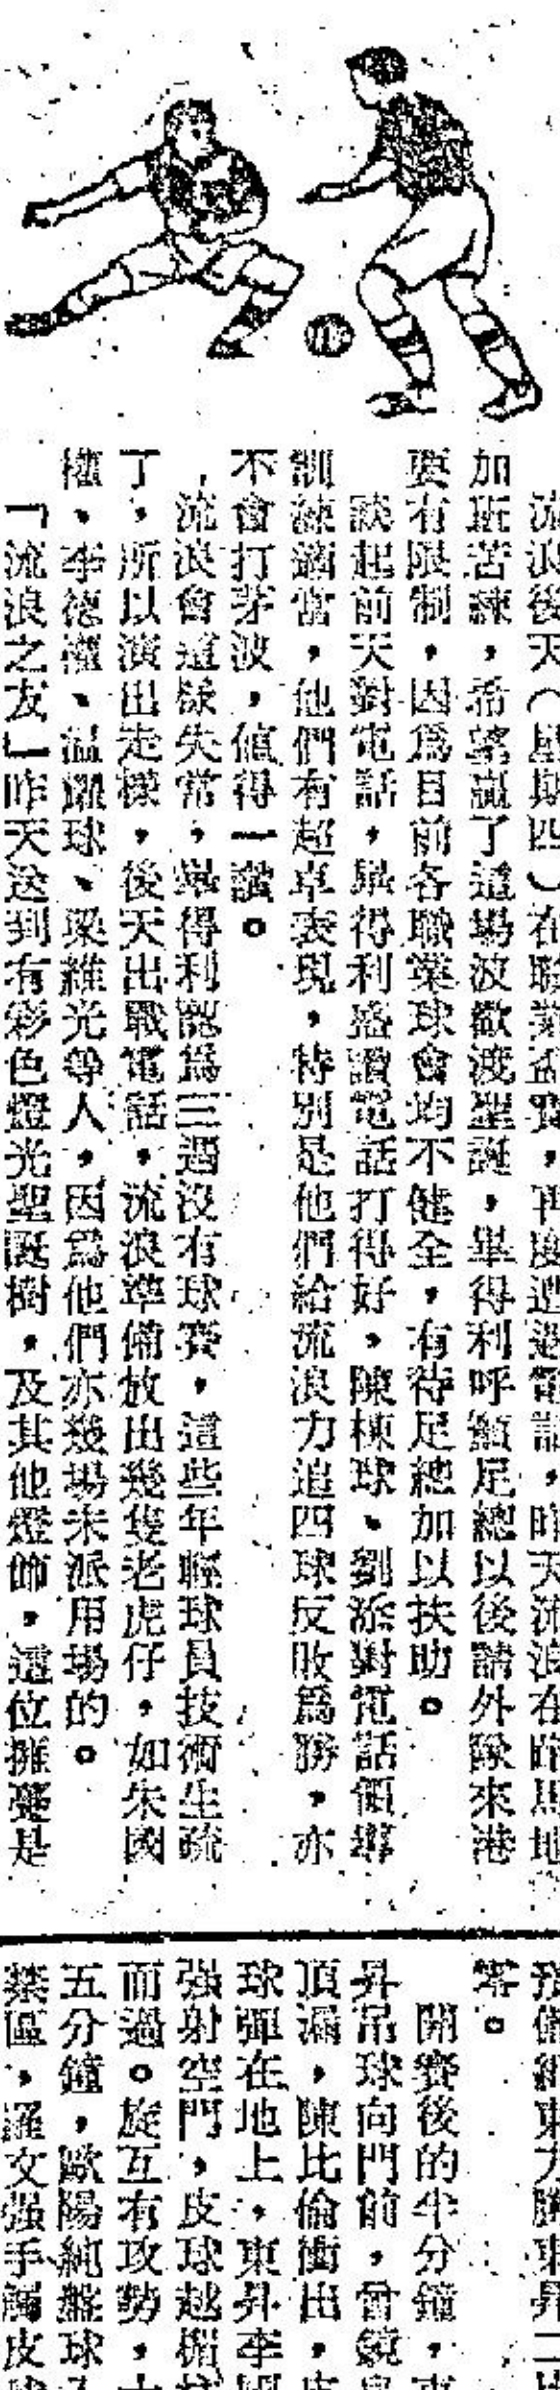 流浪後天（星期四）在聯業盃賽，再度遭遇電話，昨天流浪在跑馬地
加班苦練，希望贏了這場波歡渡聖誕，畢得利呼籲足總以後請外隊來港
要有限制，因爲目前各職業球會均不健全，有待足總加以扶助。
談起前天對電話，畢得利盛讚電話打得好，陳棟球、劉添對電話領導
訓練適當，他們有超卓表現，特別是他們給流浪力追四球反敗爲勝，亦
不會打茅波，値得一讚。
流浪會這樣失常，畢得利認爲三週沒有球賽，這些年輕球員技術生疏
了，所以演出走樣，後天出戰電話，流浪準備放出幾隻老虎仔，如朱國
權、李德權、温耀球、梁維光等人，因爲他們亦幾場未派用場的。
「流浪之友」昨天送到有彩色燈光聖誕樹，及其他燈飾，這位擁躉是
零。
開賽後的半分鐘，東
昇吊球向門前，曾鏡
頂漏，陳比倫衝出，皮
球彈在地上，東昇李國
强射空門，皮球越楣
而過。旋互有攻勢，
五分鐘，歐陽純盤球入
禁區，羅文强手觸皮球